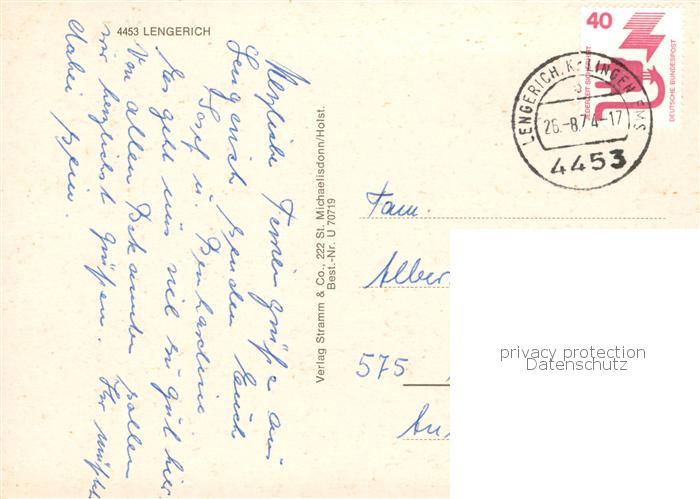 4453 LENGERICH
Herzliche Feriengrüße aus
Lengerich senden Euch
Josef u. Bernhardine
Es geht uns viel zu gut hier.
Von allen Bekannten sollen
wir herzlichst grüßen. Ihr müßtet
dabei sein.
Verlag Stramm & Co., 222 St. Michaelisdonn/Holst.
Best.-Nr. U 70719
40
JEDERZEIT SICHERHEIT
DEUTSCHE BUNDESPOST
LENGERICH, KR. LINGEN EMS
26.-8.74-17
4453
Fam.
Alber
575
An
privacy protection
Datenschutz